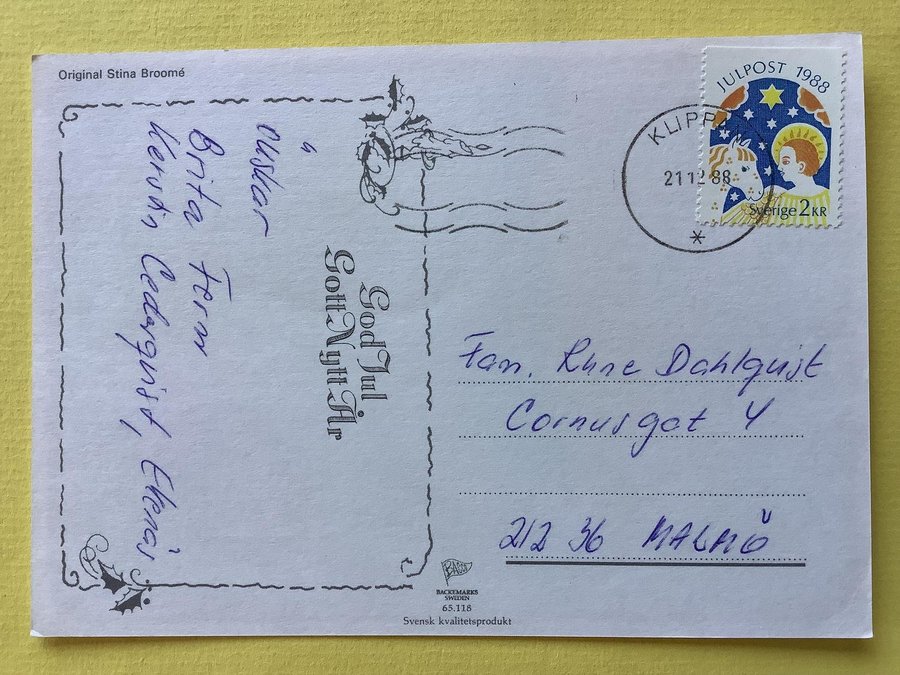 Original Stina Broomé
God Jul
Gott Nytt År
önskar
Brita Fern
Kerstin Cederquist, Ekenäs
JULPOST 1988
KLIPPAN
21 12 88
Sverige 2 KR
Fam. Rune Dahlquist
Cornusgat 4
212 36 MALMÖ
BACKEMARKS
SWEDEN
65.118
Svensk kvalitetsprodukt